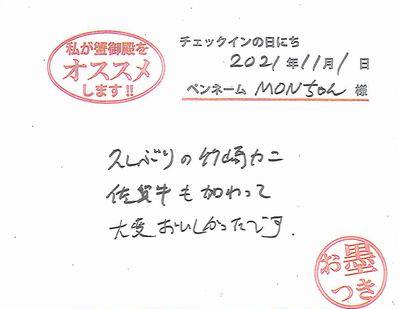 私が蟹御殿を
オススメ
します!!
チェックインの日にち
2021年11月1日
ペンネーム MONちゃん 様
久しぶりの竹崎カニ
佐賀牛も加わって
大変おいしかったです.
お墨
つき